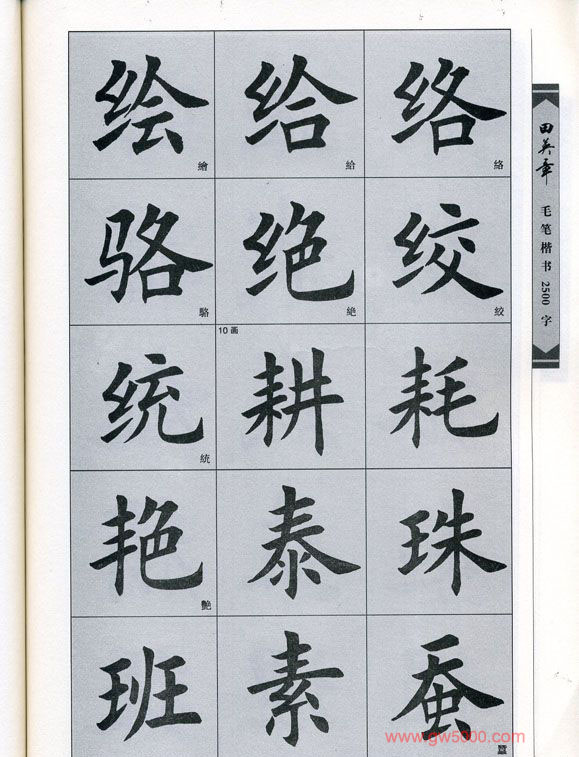 绘 给 络
繪 給 絡
骆 绝 绞
駱 絶 絞
10 画
统 耕 耗
統
艳 泰 珠
艷
班 素 蚕
田英章 毛笔楷书 2500 字
www.gw5000.com